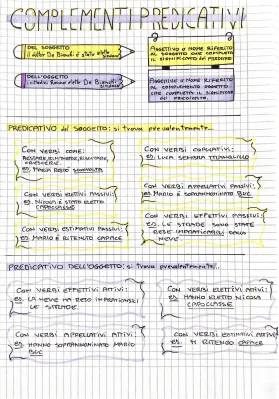 COMPLEMENTI PREDICATIVI
DEL SOGGETTO
il dottor De Bianchi è stato eletto sindaco
DELL'OGGETTO
i cittadini hanno eletto De Bianchi sindaco
AGGETTIVO O NOME RIFERITO
AL SOGGETTO CHE COMPLETA
IL SIGNIFICATO DEL PREDICATO
AGGETTIVO O NOME RIFERITO
AL COMPLEMENTO OGGETTO
CHE COMPLETA IL SIGNIFICATO
DEL PREDICATO.
PREDICATIVO del SOGGETTO: si trova prevalentemente...
CON VERBI COME:
RESTARE, RIMANERE, RISULTARE,
ES. MARIA RESTÒ
CON VERBI COPULATIVI:
ES. LUCA SEMBRA TRANQUILLO
CON VERBI ELETTIVI PASSIVI:
ES. NICOLA È STATO ELETTO
CAPOCLASSE
CON VERBI APPELLATIVI PASSIVI:
ES. MARIO È SOPRANNOMINATO BUC
CON VERBI ESTIMATIVI PASSIVI
ES. MARIO È RITENUTO CAPACE
CON VERBI EFFETTIVI PASSIVI
ES. LE STRADE SONO STATE
RESE IMPRATICABILI DALLA
NEVE
PREDICATIVO DELL'OGGETTO: si trova prevalentemente...
CON VERBI EFFETTIVI ATTIVI:
ES. LA NEVE HA RESO IMPRATICABILI
LE STRADE.
CON VERBI ELETTIVI ATTIVI:
ES. HANNO ELETTO NICOLA
CAPOCLASSE
CON VERBI APPELLATIVI ATTIVI:
ES. HANNO SOPRANNOMINATO MARIO
BUC
CON VERBI ESTIMATIVI ATTIVI
ES. TI RITENGO CAPACE